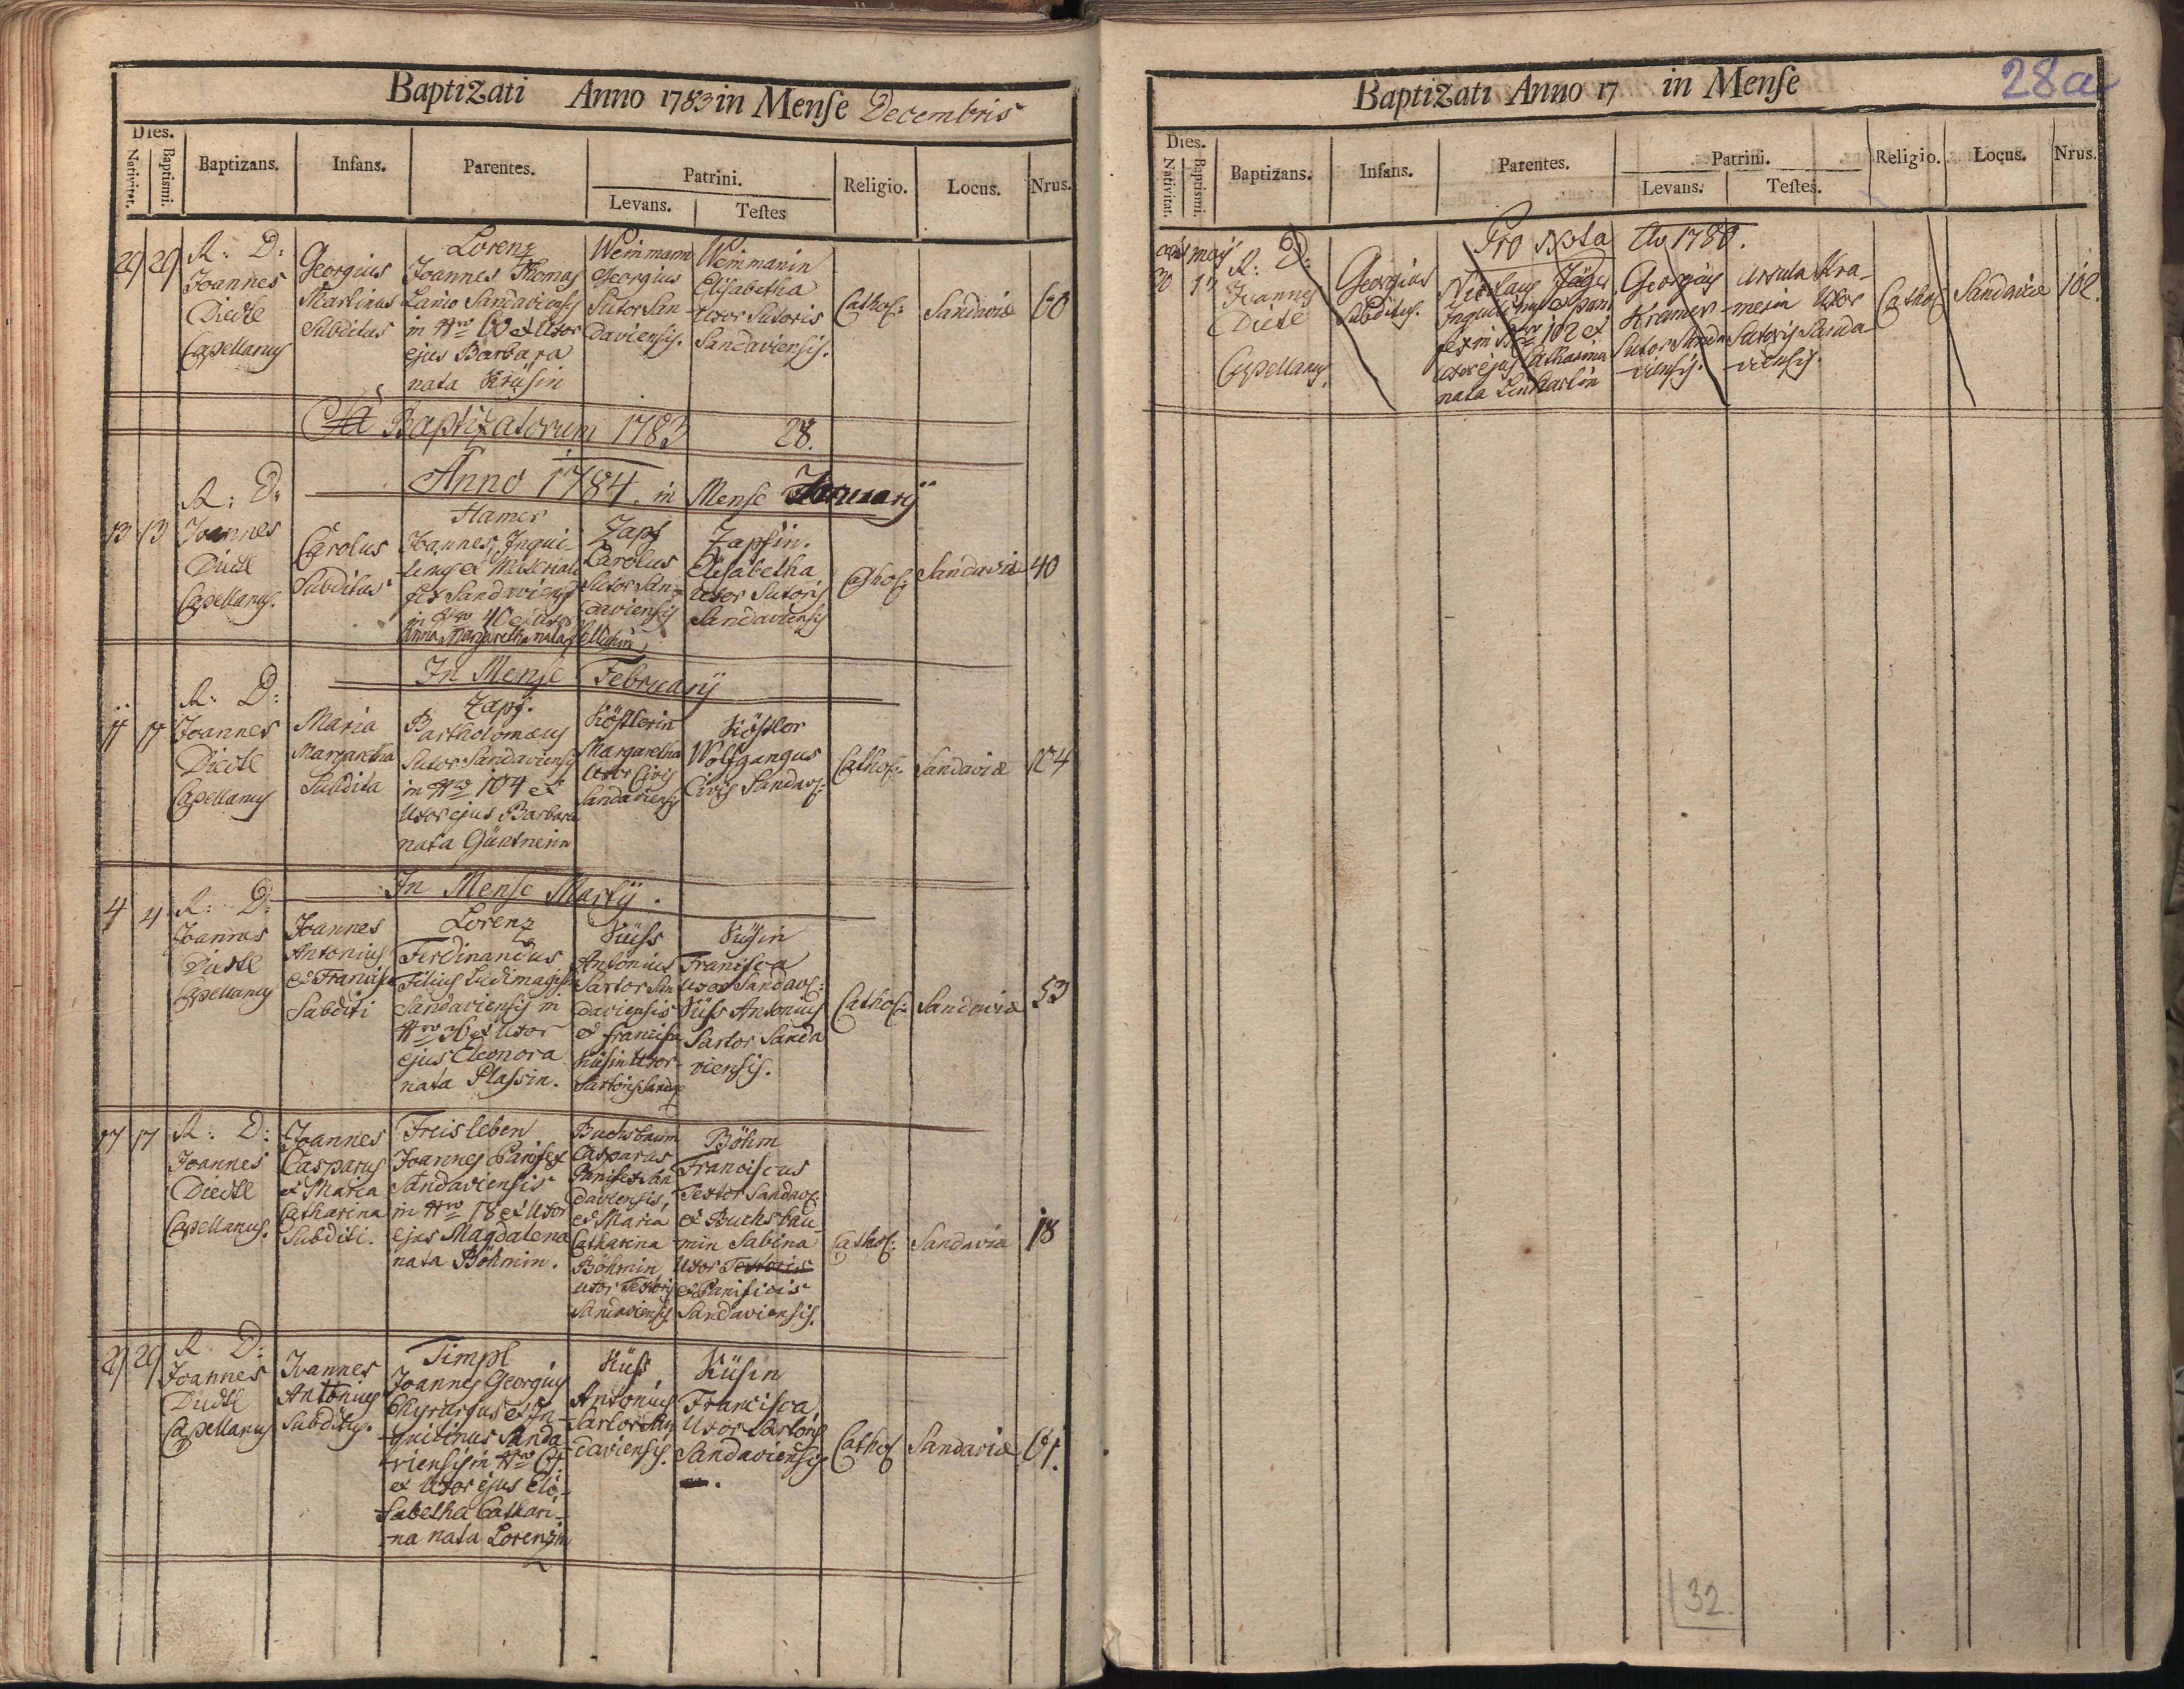 Baptizati Anno 1783 in Mense Decembris
Dies.
Nativitat.
Baptismi.
Baptizans.
Infans.
Parentes.
Patrini.
Levans.
Testes
Religio.
Locus.
Nrus.
29 29
R: D:
Joannes
Diettl
Capellanus
Georgius
Martinus
Subditus
Lorenz
Joannes Thomas
Lanio Sandaviensis
in Nro 60 et Uxor
ejus Barbara
nata Krüsin
Weinmann
Georgius
Sutor San-
daviensis.
Weinmanin
Elisabetha
Uxor Sutoris
Sandaviensis.
Cathol:
Sandaviæ
60
Sa Baptizatorum 1783 28.
Anno 1784. in Mense Januarij
13 13
R: D:
Joannes
Diettl
Capellanus.
Carolus
Subditus
Hamer
Joannes, Inqui-
linus et
Sandaviensis
in Nro 40 et Uxor
Anna Margaretha nata
Zapf
Carolus
Sutor San-
daviensis
Zapfin.
Elisabetha
Uxor Sutoris
Sandaviensis
Cathol:
Sandaviæ
40
In Mense Februarij
17 17
R: D:
Joannes
Diettl
Capellanus
Maria
Margaretha
Subdita
Zapf.
Bartholomæus
Sutor Sandaviensis
in Nro 104 et
Uxor ejus Barbara
nata Güntnerin
Köstlerin
Margaretha
Uxor Civis
Sandaviensis
Köstler
Wolfgangus
Civis Sandav:
Cathol:
Sandaviæ
104
In Mense Martij.
4 4
R: D:
Joannes
Diettl
Capellanus
Joannes
Antonius
et Francisca
Subditi
Lorenz
Ferdinandus
Filius Ludimagistri
Sandaviensis in
Nro 36 et Uxor
ejus Eleonora
nata Plassin.
Küss
Antonius
Sartor San
daviensis
et Francisca
Küsin Uxor
Sartoris Sandav
Küsin
Francisca
Uxor Sandav:
Küss Antonius
Sartor Sanda
viensis.
Cathol:
Sandaviæ
53
17 17
R: D:
Joannes
Diettl
Capellanus.
Joannes
Casparus
et Maria
Catharina
Subditi.
Freisleben
Joannes Panifex
Sandaviensis
in Nro 18 et Uxor
ejus Magdalena
nata Böhmin.
Buchsbaum
Casparus
Panifex San
daviensis,
et Maria
Catharina
Böhmin
Uxor Textoris
Sandaviensis.
Böhm
Franciscus
Textor Sandav:
et Buchsbau-
min Sabina
Uxor Textoris
et Panificis
Sandaviensis.
Cathol:
Sandaviæ
18
29 29
R: D:
Joannes
Diettl
Capellanus
Joannes
Antonius
Subditus.
Timpl
Joannes Georgius
Chyrurgus et In-
quilinus Sanda
viensis in Nro 61
et Uxor ejus Eli-
sabetha Cathari-
na nata Lorenzin
Küss
Antonius
Sartor San
daviensis.
Küsin
Francisca
Uxor Sartoris
Sandaviensis
Cathol:
Sandaviæ
61.
Baptizati Anno 17 in Mense
28a
Dies.
Nativitat.
Baptismi.
Baptizans.
Infans.
Parentes.
Patrini.
Levans.
Testes.
Religio.
Locus.
Nrus.
Pro Nota Ao 1780.
30 maij 1
R: D:
Joannes
Dietl
Capellanus.
Georgius
Subditus.
Nicolaus Jäger
Inquilinus et pani
fex in Nro 102 et
Uxor ejus Catharina
nata Linhartin
Georgius
Kramer
Sutor Sanda
viensis.
Ursula Kra-
merin Uxor
Sutoris Sanda-
viensis.
Cathol:
Sandaviæ
102.
32